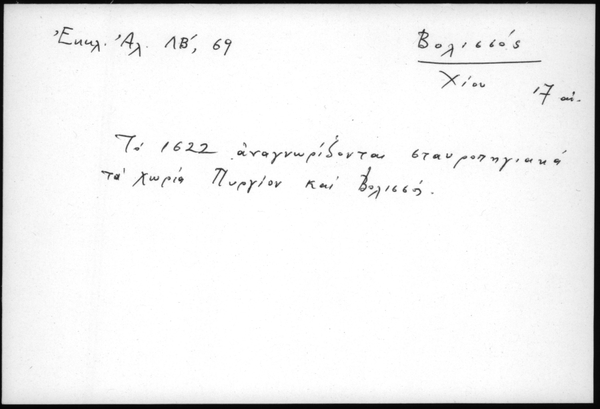 Ἐκκλ. Ἀλ. ΛΒ', 69
Βολισσός
Χίου
17 αἰ.
Τό 1622 ἀναγνωρίζονται σταυροπηγιακά
τά χωριά Πυργίον καί Βολισσός.